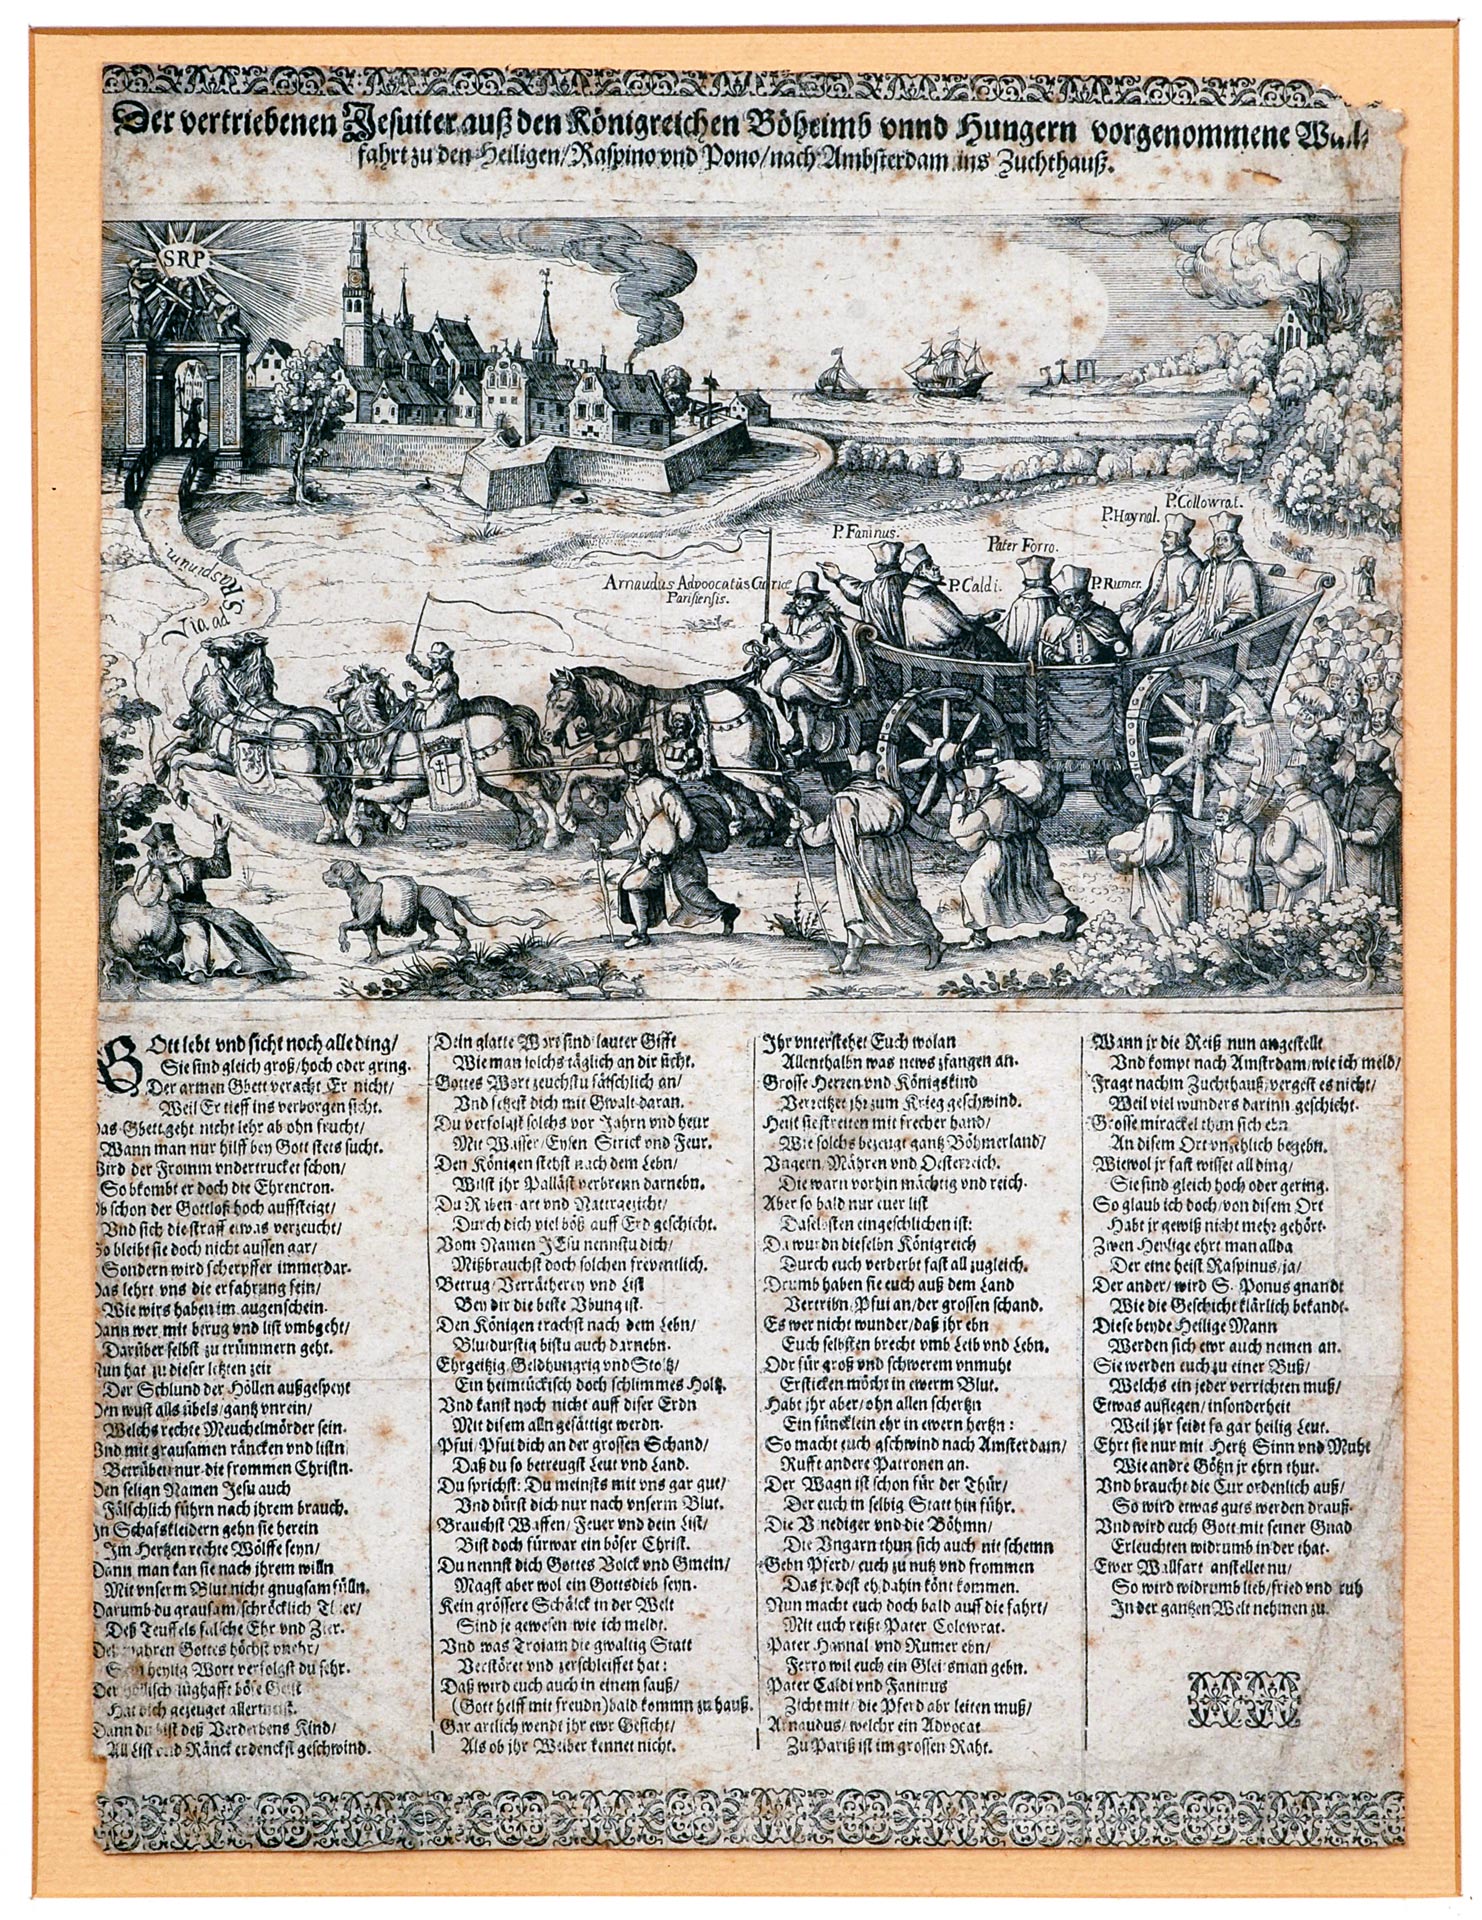 Der vertriebenen Jesuiter auß den Königreichen Böheimb vnnd Hungern vorgenommene
fahrt zu den Heiligen/ Raspino vnd Pono/ nach Ambsterdam ins Zuchthauß.
SRP
P. Collowrat.
P. Haynal.
P. Faninus.
Pater Forro.
Arnaudus Advoocatus Curiæ
Parisiensis.
P. Caldi.
P. Rumer.
Via ad S Raspinum.
GOtt lebt vnd sicht noch alle ding/
Sie sind gleich groß/ hoch oder gring.
Der armen Gbett veracht Er nicht/
Weil Er tieff ins verborgen sicht.
Das Gbett geht nicht lehr ab ohn frucht/
Wann man nur hilff bey Gott stets sucht.
Wird der Fromm vndertrucket schon/
So bkombt er doch die Ehrencron.
Ob schon der Gottloß hoch auffsteigt/
Vnd sich die straff etwas verzeucht/
So bleibt sie doch nicht aussen gar/
Sondern wird scherpffer immerdar.
Das lehrt vns die erfahrung fein/
Wie wirs haben im augenschein.
Dann wer mit betrug vnd list vmbgeht/
Darüber selbst zu trümmern geht.
Nun hat zu dieser letzten zeit
Der Schlund der Höllen außgespeyt
Den wust alls übels/ gantz vnrein/
Welchs rechte Meuchelmörder sein.
Vnd mit grausamen räncken vnd listn
Betrüben nur die frommen Christn.
Den selign Namen Jesu auch
Fälschlich führn nach ihrem brauch.
In Schafskleidern gehn sie herein
Im Hertzen rechte Wölffe seyn/
Dann man kan sie nach ihrem willn
Mit vnserm Blut nicht gnugsam fülln.
Darumb du grausam/ schröcklich Thier/
Deß Teuffels falsche Ehr vnd Zier.
Des wahren Gottes höchst vnehr/
Sein heylig Wort verfolgst du sehr.
Der höllisch lughafft böse Geist
Hat dich gezeuget allermeist.
Dann du bist deß Verderbens Kind/
All List vnd Ränck erdenckst geschwind.
Dein glatte Wort sind lauter Gifft
Wie man solchs täglich an dir sicht.
Gottes Wort zeuchstu fälschlich an/
Vnd setzest dich mit Gwalt daran.
Du verfolgst solchs vor Jahrn vnd heur
Mit Wasser/ Eysen Strick vnd Feur.
Den Königen stehst nach dem Lebn/
Wilst jhr Palläst verbrenn darnebn.
Du Riben-art vnd Nattrgezicht/
Durch dich viel böß auff Erd geschicht.
Vom Namen JEsu nennstu dich/
Mißbrauchst doch solchen freventlich.
Betrug/ Verrätherey vnd List
Bey dir die beste Vbung ist.
Den Königen trachst nach dem Lebn/
Blutdurstig bistu auch darnebn.
Ehrgeitzig, Geldhungrig vnd Stoltz/
Ein heimtückisch doch schlimmes Holtz.
Vnd kanst noch nicht auff diser Erdn
Mit disem alln gesättigt werdn.
Pfui/ Pfui dich an der grossen Schand/
Daß du so betreugst Leut vnd Land.
Du sprichst: Du meinsts mit vns gar gut/
Vnd dürst dich nur nach vnserm Blut.
Brauchst Waffen/ Feuer vnd dein List/
Bist doch fürwar ein böser Christ.
Du nennst dich Gottes Volck vnd Gmein/
Magst aber wol ein Gottsdieb seyn.
Kein grössere Schälck in der Welt
Sind je gewesen wie ich meldt.
Vnd was Troiam die gwaltig Statt
Verstöret vnd zerschleiffet hat:
Daß wird euch auch in einem sauß/
(Gott helff mit freudn) bald kommn zu hauß.
Gar artlich wendt jhr ewr Gesicht/
Als ob jhr Weiber kennet nicht.
Ihr vnterstehet Euch wolan
Allenthalbn was news zfangen an.
Grosse Herren vnd Königskind
Verreitzet jhr zum Krieg geschwind.
Heist sie streiten mit frecher hand/
Wie solchs bezeugt gantz Böhmerland/
Vngern/ Mähren vnd Oesterreich.
Die warn vorhin mächtig vnd reich.
Aber so bald nur euer list
Daselbsten eingeschlichen ist:
Da wurdn dieselbn Königreich
Durch euch verderbt fast all zugleich.
Drumb haben sie euch auß dem Land
Vertribn/ Pfui an/ der grossen schand.
Es wer nicht wunder/ daß jhr ebn
Euch selbsten brecht vmb Leib vnd Lebn.
Odr für groß vnd schwerem vnmuht
Ersticken möcht in ewerm Blut.
Habt jhr aber/ ohn allen schertzn
Ein füncklein ehr in ewern hertzn:
So macht euch gschwind nach Amsterdam/
Rufft andere Patronen an.
Der Wagn ist schon für der Thür/
Der euch in selbig Statt hin führ.
Die Venediger vnd die Böhmn/
Die Vngarn thun sich auch nit schemn
Gebn Pferd/ euch zu nutz vnd frommen
Das jr dest eh dahin könt kommen.
Nun macht euch doch bald auff die fahrt/
Mit euch reißt Pater Colowrat.
Pater Haynal vnd Rumer ebn/
Ferro wil euch ein Gleitsman gebn.
Pater Caldi vnd Faninus
Zicht mit/ die Pferd abr leiten muß/
Arnaudus/ welchr ein Advocat
Zu Pariß ist im grossen Raht.
Wann jr die Reiß nun angestellt
Vnd kompt nach Amstrdam/ wie ich meld/
Fragt nachm Zuchthauß/ vergest es nicht/
Weil viel wunders darinn geschicht.
Grosse mirackel thun sich ebn
An disem Ort vnzehlich begebn.
Wiewol jr fast wisset all ding/
Sie sind gleich hoch oder gering.
So glaub ich doch/ von disem Ort
Habt jr gewiß nicht mehr gehört.
Zwen Heylige ehrt man allda
Der eine heist Raspinus/ ja/
Der ander/ wird S. Ponus gnandt
Wie die Geschicht klärlich bekandt.
Diese beyde Heilige Mann
Werden sich ewr auch nemen an.
Sie werden euch zu einer Buß/
Welchs ein jeder verrichten muß/
Etwas auflegen/ insonderheit
Weil jhr seidt so gar heilig Leut.
Ehrt sie nur mit Hertz Sinn vnd Muht
Wie andre Götzn jr ehrn thut.
Vnd braucht die Cur ordenlich auß/
So wird etwas guts werden drauß.
Vnd wird euch Gott mit seiner Gnad
Erleuchten widrumb in der that.
Ewer Wallfart anstellet nu/
So wird widrumb lieb/ fried vnd ruh
In der gantzen Welt nehmen zu.